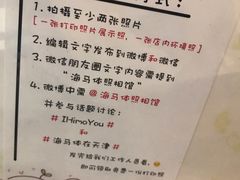 1. 拍摄至少两张照片
[一张打印照片展示照、一张店内环境照]
2. 编辑文字发布到微博和微信
3. 微信朋友圈文字内容需提到
“海马体照相馆”
4. 微博中需@海马体照相馆
并参与话题讨论:
# IHimoYou #
和
# 海马体在天津 #
发完给我们工作人员看
即可领取免费一份打印照